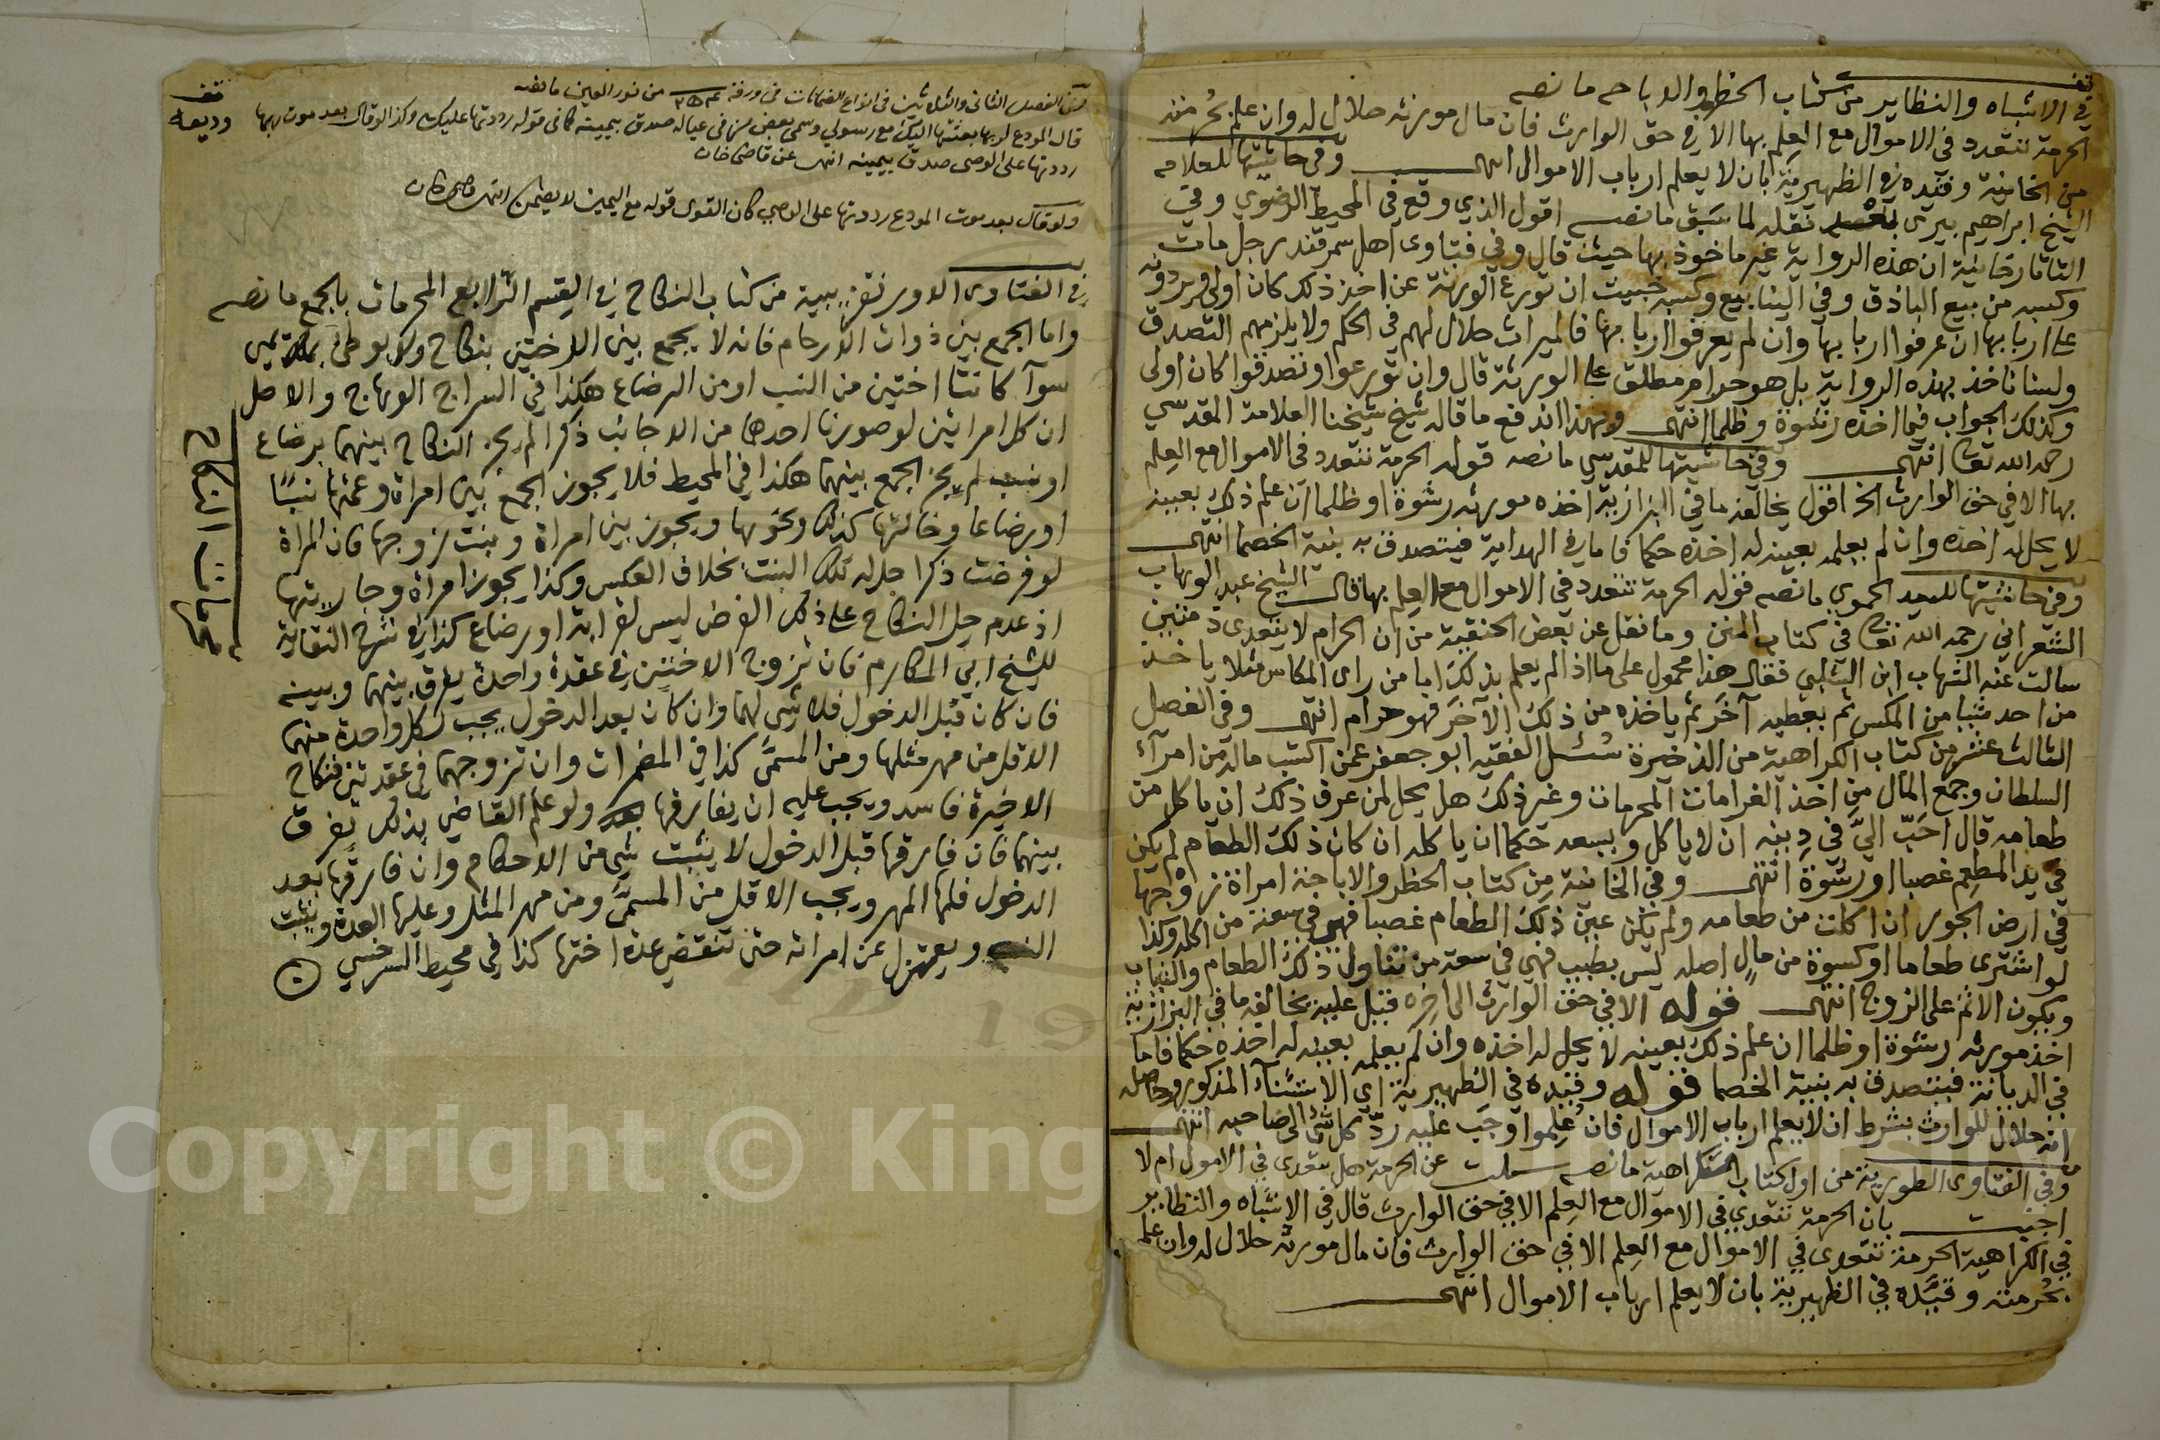 في الاشباه والنظاير من كتاب الحظر والاباحه ما نصه
الحرمة تتعدد في الاموال مع العلم بها الا في حق الوارث فان مال مورثه حلال له وان علم بحرمته
من الخانية وقيده في الظهيرية بان لا يعلم ارباب الاموال انتهى وفي حاشيتها للعلامه
الشيخ ابراهيم بيرى نقله لما سبق ما نصه اقول الذي وقع في المحيط الرضوي وفي
التاتارخانية ان هذه الرواية غير ماخوذ بها حيث قال وفي فتاوى اهل سمرقند رجل مات
وكسبه من بيع الباذق وفي الينابيع وكسبه خبيث ان تورع الورثة عن اخذ ذلك كان اولى ويردونه
على اربابها ان عرفوا اربابها وان لم يعرفوا اربابها فالميراث حلال لهم في الحكم ولا يلزمهم التصدق
ولسنا ناخذ بهذه الرواية بل هو حرام مطلق على الورثة قال وان تورعوا وتصدقوا كان اولى
وكذلك الجواب فيما اخذه رشوة وظلما انتهى وبهذا اندفع ما قاله شيخ شيخنا العلامة المقدسي
رحمه الله تعا انتهى وفي حاشيتها للمقدسي ما نصه قوله الحرمة تتعدد في الاموال مع العلم
بها الا في حق الوارث الخ اقول يخالفه ما في البزازية اخذه مورثه رشوة او ظلما ان علم ذلك بعينه
لا يحل له اخذه وان لم يعلمه بعينه له اخذه حكما فاما في الهداية فيتصدق به بنية الخصما انتهى
وفي حاشيتها للسيد الحموي ما نصه قوله الحرمة تتعدد في الاموال مع العلم بها قال الشيخ عبد الوهاب
الشعراني رحمه الله تعا في كتاب المنن وما نقل عن بعض الحنفية من ان الحرام لا يتعدى ذمتين
سالت عنه الشهاب ابن الشلبي فقال هذا محمول على ما اذا لم يعلم بذلك اما من راى المكاس مثلا ياخذ
من احد شيا من المكس ثم يعطيه آخر ثم ياخذه من ذلك الآخر فهو حرام انتهى وفي الفصل
الثالث عشر من كتاب الكراهية من الذخيرة سئل الفقيه ابو جعفر عمن اكتسب ماله من امرآء
السلطان وجمع المال من اخذ الغرامات المحرمات وغير ذلك هل يحل لمن عرف ذلك ان ياكل من
طعامه قال احب الي في دينه ان لا ياكل ويسعه حكما ان ياكله ان كان ذلك الطعام لم يكن
في يد المطعم غصبا او رشوة انتهى وفي الخانية من كتاب الحظر والاباحة امراة زوجها
في ارض الجور ان اكلت من طعامه ولم يكن عين ذلك الطعام غصبا فهي في سعة من اكله وكذا
لو اشترى طعاما او كسوة من مال اصله ليس بطيب فهي في سعة من تناول ذلك الطعام والثياب
ويكون الاثم على الزوج انتهى قوله الا في حق الوارث الى اخره قيل عليه يخالفه ما في البزازية
اخذ مورثه رشوة او ظلما ان علم ذلك بعينه لا يحل له اخذه وان لم يعلمه بعينه له اخذه حكما فاما
في الديانة فيتصدق به بنية الخصما قوله وقيده في الظهيرية اي الاستثناء المذكور وحاصله
انه حلال للوارث بشرط ان لا يعلم ارباب الاموال فان علموا وجب عليه رد كل شئ الى صاحبه انتهى
وفي الفتاوى الطورية من اول كتاب الكراهية ما نصه سئلت عن الحرمة هل تتعدى في الاموال ام لا
اجبت بان الحرمة تتعدى في الاموال مع العلم الا في حق الوارث قال في الاشباه والنظاير
في الكراهية الحرمة تتعدى في الاموال مع العلم الا في حق الوارث فان مال مورثه حلال له وان علم
بحرمته وقيده في الظهيرية بان لا يعلم ارباب الاموال انتهى
الفصل الثانى والثلاثين فى انواع الضمانات فى ورقة من نور العين ما نصه
قال المودع لربها بعثتها اليك مع رسولي وسمى بعض من فى عياله صدق بيمينه كما فى قوله رددتها عليك وكذا لو قال بعد موت ربها
رددتها على الوصى صدق بيمينه انتهى عن قاضى خان
ولو قال بعد موت المودع رددتها على الوصي كان القول قوله مع اليمين لا يضمن انتهى قاضى خان
وديعه
في الفتاوى الاورنقزيبية من كتاب النكاح في القسم الرابع المحرمات بالجمع ما نصه
واما الجمع بين ذوات الارحام فانه لا يجمع بين الاختين بنكاح ولا بوطئ بملك يمين
سوآ كانتا اختين من النسب او من الرضاع هكذا في السراج الوهاج والاصل
ان كل امراتين لو صورنا احدهما من الاجانب ذكرا لم يجز النكاح بينهما برضاع
او نسب لم يجز الجمع بينهما هكذا في المحيط فلا يجوز الجمع بين امراة وعمتها نسبًا
او رضاعا وخالتها كذلك ونحوها ويجوز بين امراة وبنت زوجها فان المراة
لو فرضت ذكرا حل له تلك البنت بخلاف العكس وكذا يجوز امراة وجاريتها
اذ عدم حل النكاح على ذلك الفرض ليس لقرابة او رضاع كذا في شرح النقاية
للشيخ ابي المكارم فان تزوج الاختين في عقدة واحدة يفرق بينهما وبينه
فان كان قبل الدخول فلا شئ لهما وان كان بعد الدخول يجب لكل واحدة منهما
الاقل من مهر مثلها ومن المسمى كذا في المضمرات وان تزوجهما في عقدتين فنكاح
الاخيرة فاسد ويجب عليه ان يفارقها ولو علم القاضي بذلك يفرق
بينهما فان فارقها قبل الدخول لا يثبت شئ من الاحكام وان فارقها بعد
الدخول فلها المهر ويجب الاقل من المسمى ومن مهر المثل وعليها العدة ويثبت
النسب ويعتزل عن امراته حتى تنقضي عدة اختها كذا في محيط السرخسي
محرمات النكاح
Copyright © King